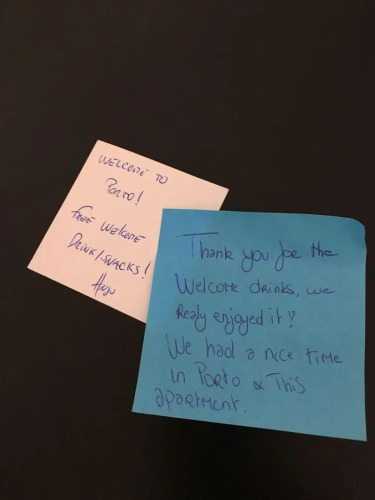 WELCOME TO
PORTO!
FREE WELCOME
DRINK/SNACKS!
Thank you foe the
Welcome drinks, we
Realy enjoyed it!
We had a nice time
in Porto & This
apartment.